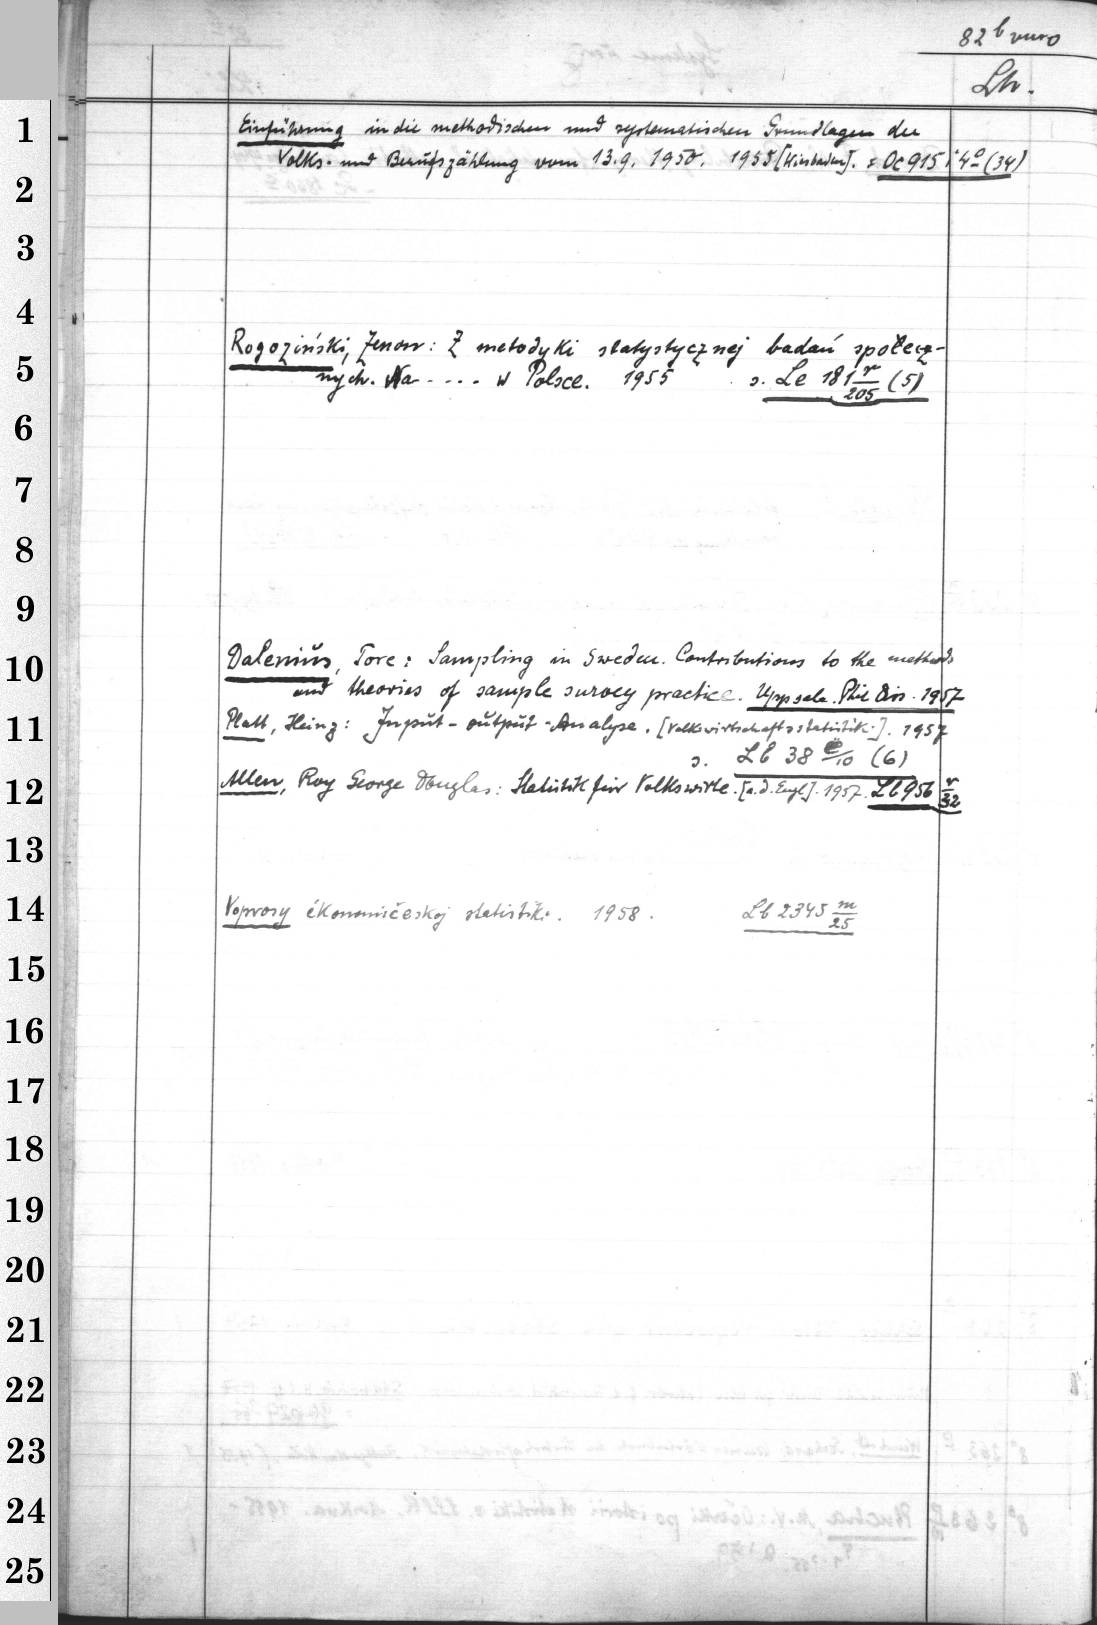 82 b verso
Lb.
1
Einführung in die methodischen und systematischen Grundlagen der
Volks- und Berufszählung vom 13.9.1950. 1955 [Wiesbaden]. = Oc 915 i 4º (34)
2
3
4
Rogoziński, Zenon: Z metodyki statystycznej badań społecz-
5
nych. Na .... w Polsce. 1955 s. Le 181 r/205 (5)
6
7
8
9
Dalenius, Tore: Sampling in Sweden. Contributions to the methods
10
and theories of sample survey practice. Uppsala. Phil Diss. 1957
11
Platt, Heinz: Input-output-Analyse. [Volkswirtschaftsstatistik]. 1957
s. Lb 38 e/10 (6)
12
Allen, Roy George Douglas: Statistik für Volkswirte. [a.d. Engl]. 1957. Lb 956 r/32
13
14
Voprosy ėkonomičeskoj statistiki. 1958. Lb 2345 m/25
15
16
17
18
19
20
21
22
23
24
25